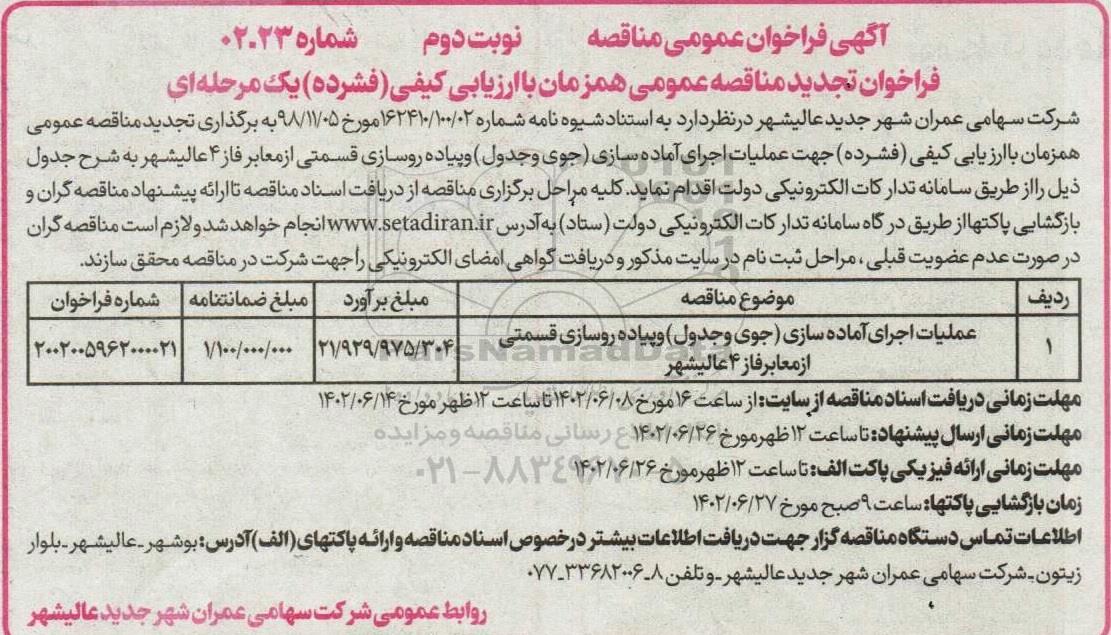 آگهی فراخوان عمومی مناقصه نوبت دوم شماره ۲۳-۰۲
فراخوان تجدید مناقصه عمومی همزمان با ارزیابی کیفی (فشرده) یک مرحله‌ای
شرکت سهامی عمران شهر جدید عالیشهر در نظر دارد به استناد شیوه نامه شماره ۱۶۲۴۱۰/۱۰۰/۰۲ مورخ ۹۸/۱۱/۰۵ به برگذاری تجدید مناقصه عمومی
همزمان با ارزیابی کیفی (فشرده) جهت عملیات اجرای آماده سازی (جوی وجدول) وپیاده روسازی قسمتی از معابر فاز ۴ عالیشهر به شرح جدول
ذیل را از طریق سامانه تدارکات الکترونیکی دولت اقدام نماید. کلیه مراحل برگزاری مناقصه از دریافت اسناد مناقصه تا ارائه پیشنهاد مناقصه گران و
بازگشایی پاکتها از طریق درگاه سامانه تدارکات الکترونیکی دولت (ستاد) به آدرس www.setadiran.ir انجام خواهد شد و لازم است مناقصه گران
در صورت عدم عضویت قبلی، مراحل ثبت نام در سایت مذکور و دریافت گواهی امضای الکترونیکی را جهت شرکت در مناقصه محقق سازند.
ردیف موضوع مناقصه مبلغ برآورد مبلغ ضمانتنامه شماره فراخوان
۱ عملیات اجرای آماده سازی (جوی وجدول) وپیاده روسازی قسمتی ۲۱/۹۲۹/۹۷۵/۳۰۴ ۱/۱۰۰/۰۰۰/۰۰۰ ۲۰۰۲۰۰۵۹۶۲۰۰۰۰۲۱
از معابر فاز ۴ عالیشهر
ParsNamadData
مهلت زمانی دریافت اسناد مناقصه از سایت: از ساعت ۱۶ مورخ ۱۴۰۲/۰۶/۰۸ تا ساعت ۱۲ ظهر مورخ ۱۴۰۲/۰۶/۱۴
مهلت زمانی ارسال پیشنهاد: تا ساعت ۱۲ ظهر مورخ ۱۴۰۲/۰۶/۲۶
مهلت زمانی ارائه فیزیکی پاکت الف: تا ساعت ۱۲ ظهر مورخ ۱۴۰۲/۰۶/۲۶
زمان بازگشایی پاکتها: ساعت ۹ صبح مورخ ۱۴۰۲/۰۶/۲۷
اطلاعات تماس دستگاه مناقصه گزار جهت دریافت اطلاعات بیشتر در خصوص اسناد مناقصه و ارائه پاکتهای (الف) آدرس: بوشهر - عالیشهر - بلوار
زیتون - شرکت سهامی عمران شهر جدید عالیشهر - وتلفن ۸-۳۳۶۸۲۰۰۶-۰۷۷
روابط عمومی شرکت سهامی عمران شهر جدید عالیشهر